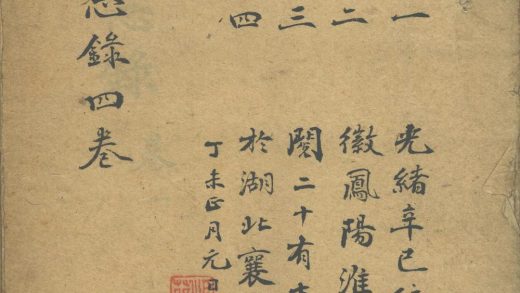 一
二
三
四
光緒辛巳
徽鳳陽淮
閱二十有
於湖北襄
丁未正月元日
錄四卷